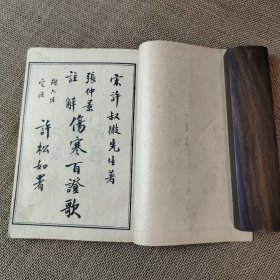 宋許叔微先生著
張仲景
註解
傷寒百證歌
許松如署